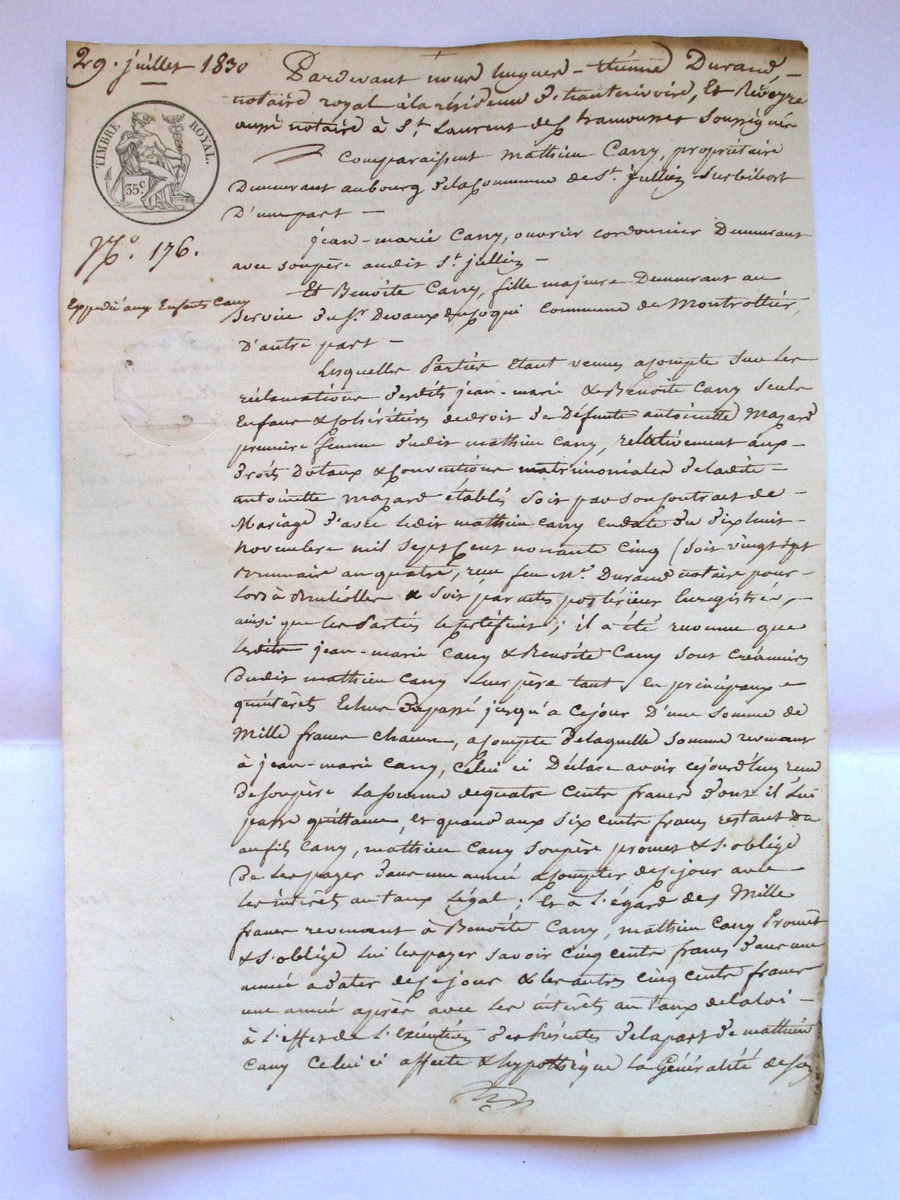 29. juillet 1830
Pardevant nous hugues-étienne Durand,
notaire royal à la résidence de hauterivoire, Et
aussi notaire à St. Laurent de Chamousset soussignés
Comparaissent Mathieu Cany, propriétaire
Demeurant au bourg de la Commune de St. Jullien sur bibost
D'une part —
TIMBRE ROYAL.
35c.
No. 176.
jean-marie Cany, ouvrier cordonnier Demeurant
avec son père audit St. jullien —
Expédié aux Enfants Cany
Et Benoîte Cany, fille majeure Demeurant au
service du Sr. Devaux Commune de Montrottier,
D'autre part —
Lesquelles Parties Etant venues à compte sur les
réclamations desdits jean-marie & Benoîte Cany seuls
Enfans & cohéritiers de droit de Défunte antoinette Mazard
première femme dudit mathieu Cany, relativement aux
Droits Dotaux & Conventions matrimoniales de ladite
antoinette Mazard établis soit par son Contrait de
Mariage d'avec ledit mathieu Cany en date du dix huit
Novembre mil sept Cent nonante Cinq (soit vingt sept
brumaire an quatre, reçu feu Me. Durand notaire pour
Lors à & soit par actes postérieurs Enregistrés,
ainsi que les Parties ; il a été reconnu que
lesdits jean-marie Cany & Benoîte Cany sont Créanciers
dudit mathieu Cany leur père tant en principaux
qu'intérêts Echus du passé jusqu'à ce jour D'une somme de
Mille francs chacun, à compte de laquelle somme revenant
à jean-marie Cany, Celui ci Déclare avoir cejourd'hui reçu
de son père La somme de quatre Cents francs dont il lui
passe quittance, et quand aux six cents francs restant dû
au fils Cany, mathieu Cany son père promet & s'oblige
De les payer dans une année à compter de ce jour avec
les intérêts au taux légal; Et à l'égard des Mille
francs revenant à Benoîte Cany, mathieu Cany Promet
& s'oblige lui les payer savoir cinq cents francs dans une
année à dater de ce jour & les autres cinq cents francs
une année après avec les intérêts au taux de la loi —
à l'effet de l'Exécution des Présentes de la part de mathieu
Cany Celui ci affecte & hypothèque la Généralité de ses